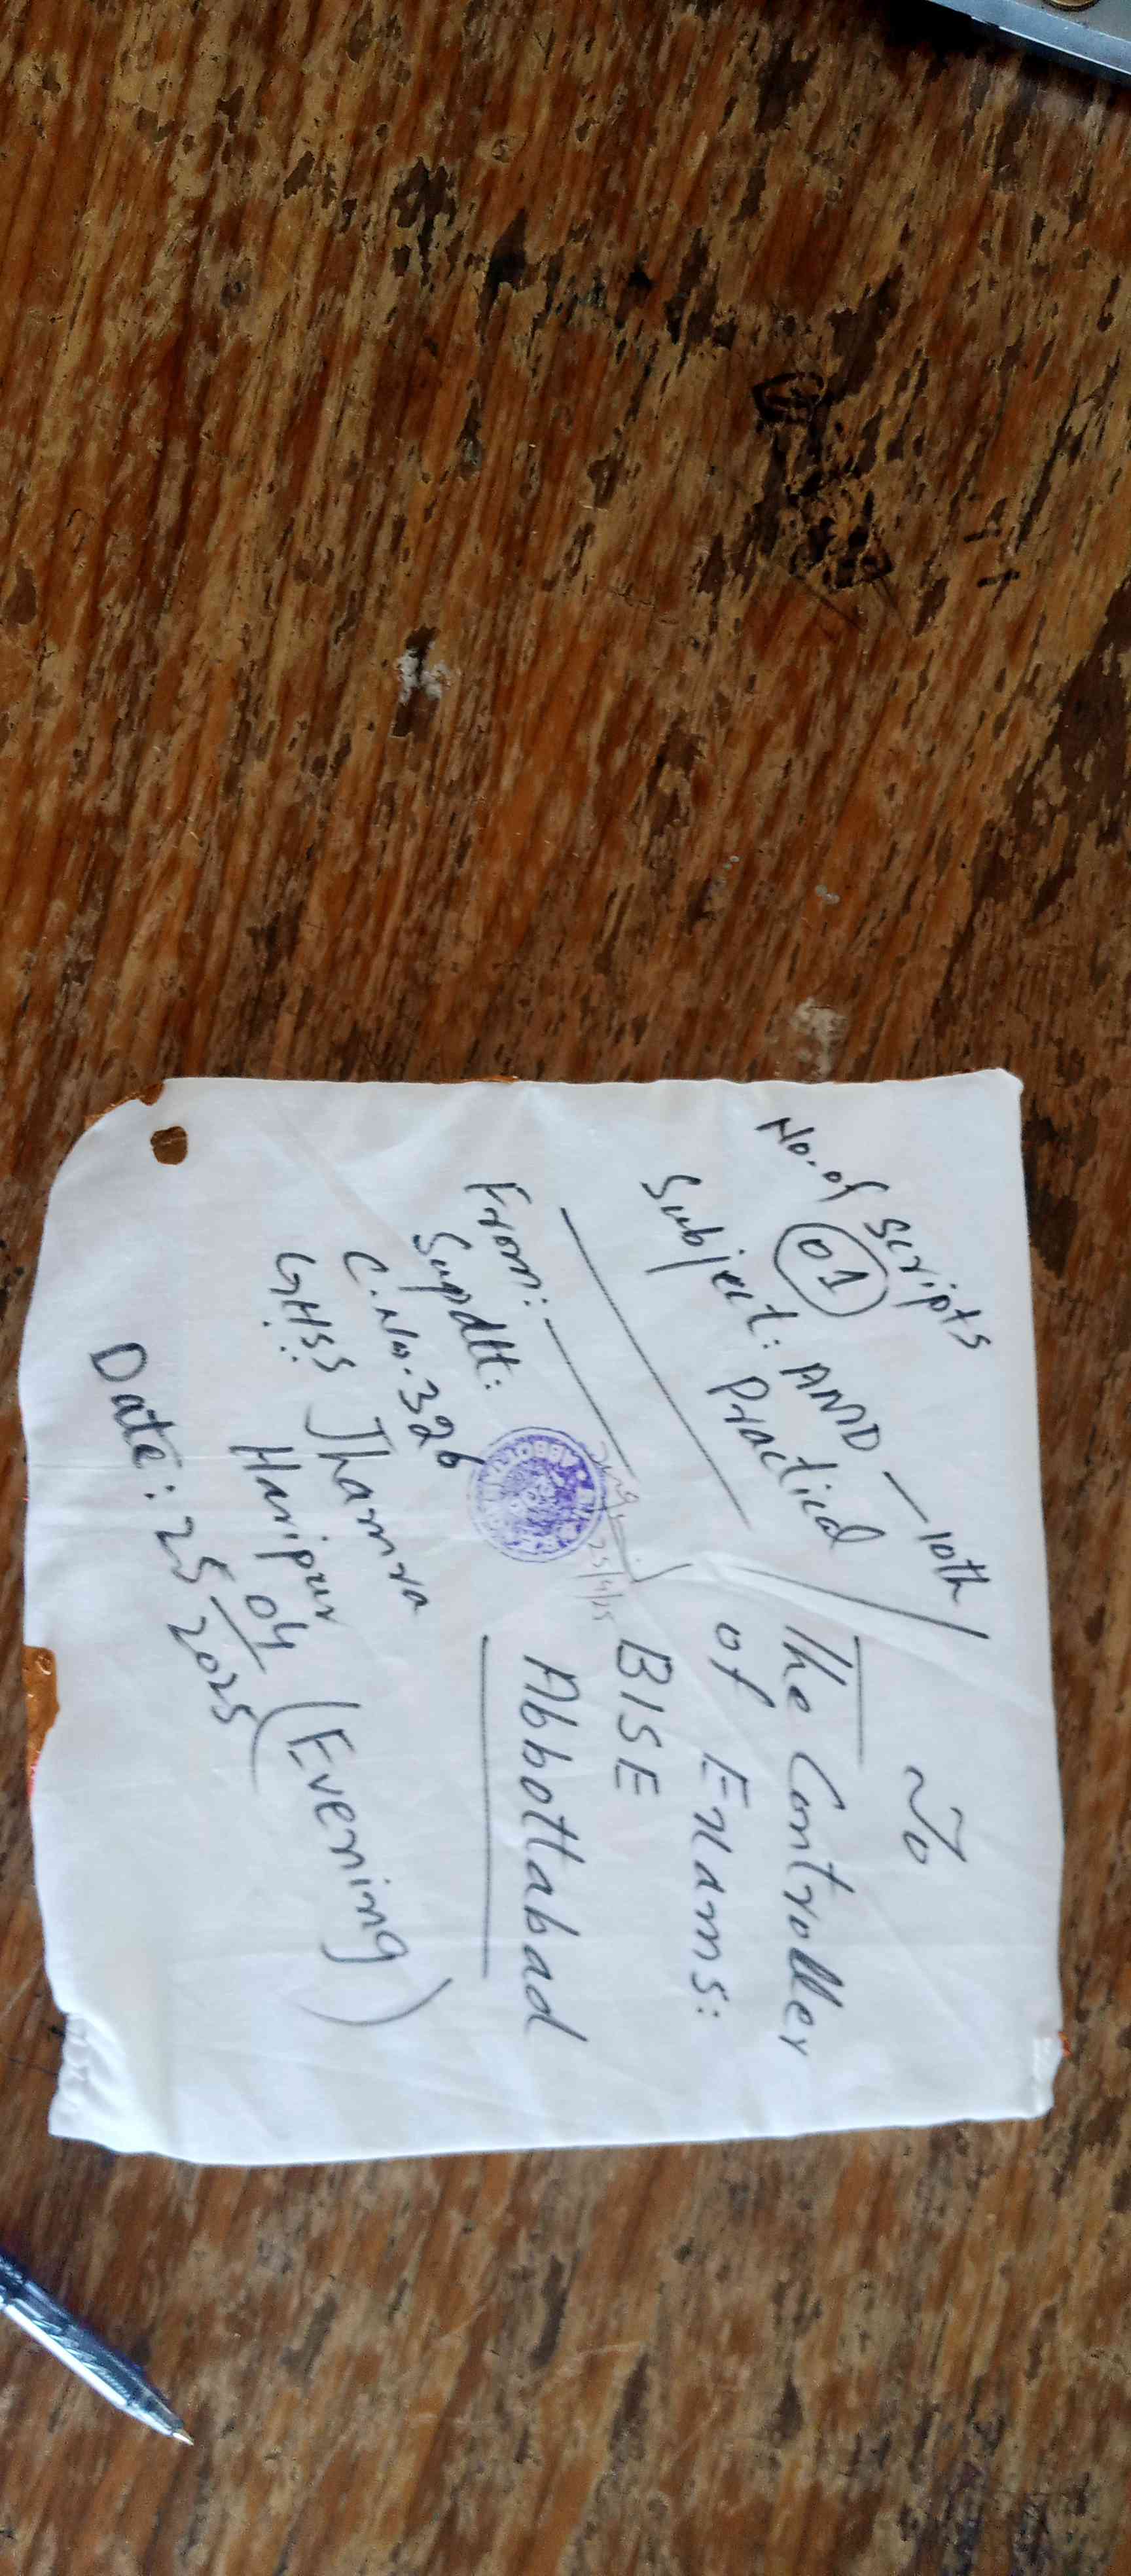 No. of Scripts
01
Subject: AMD — 10th
Practical
To
The Controller
of Exams:
BISE
Abbottabad
From:
Supdtt:
C.No. 326
GHSS Jhamra
Haripur
Date: 25/04/2025 (Evening)
25/4/25